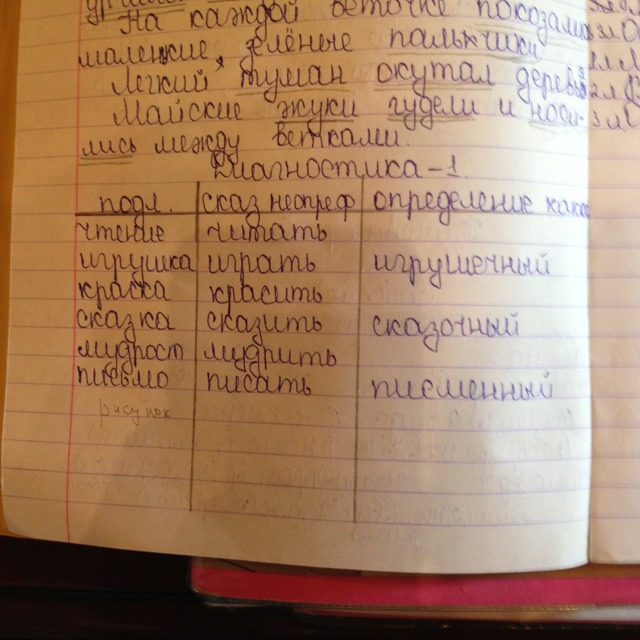 На каждой веточке показались
маленькие зелёные пальчики
Легкий туман окутал деревья
Майские жуки гудели и носи-
лись между ветками.
Диагностика-1.
подл. сказ неопреф определение како
чтение читать
игрушка играть игрушечный
краска красить
сказка сказить сказочный
мудрост мудрить
письмо писать писменный
рисунок